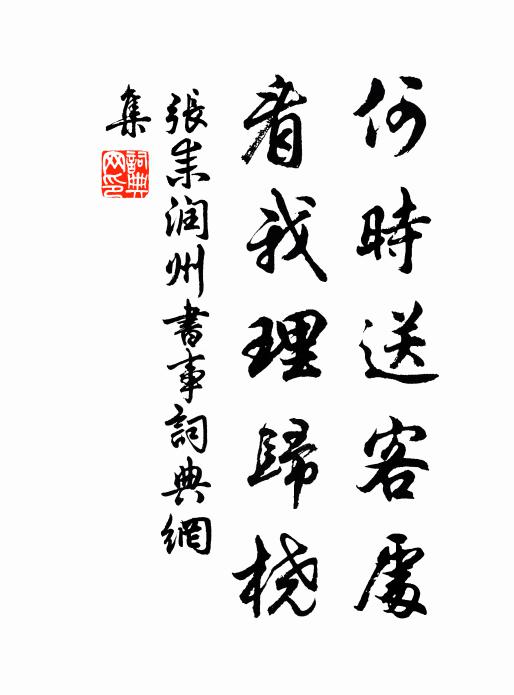 何時送客處
看我理歸橈
張耒润州書事詞典網
集
詞典网印